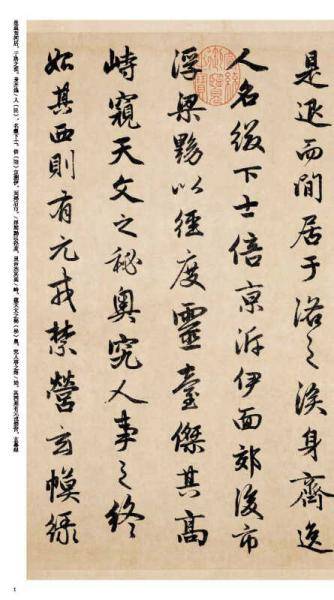 是退而間居于洛之涘身齊逸
人名綴下士倍京泝伊面郊後市
浮梁黝以徑度靈臺傑其高
峙窺天文之秘奥究人事之終
始其西則有元戎禁營玄幙緑
1